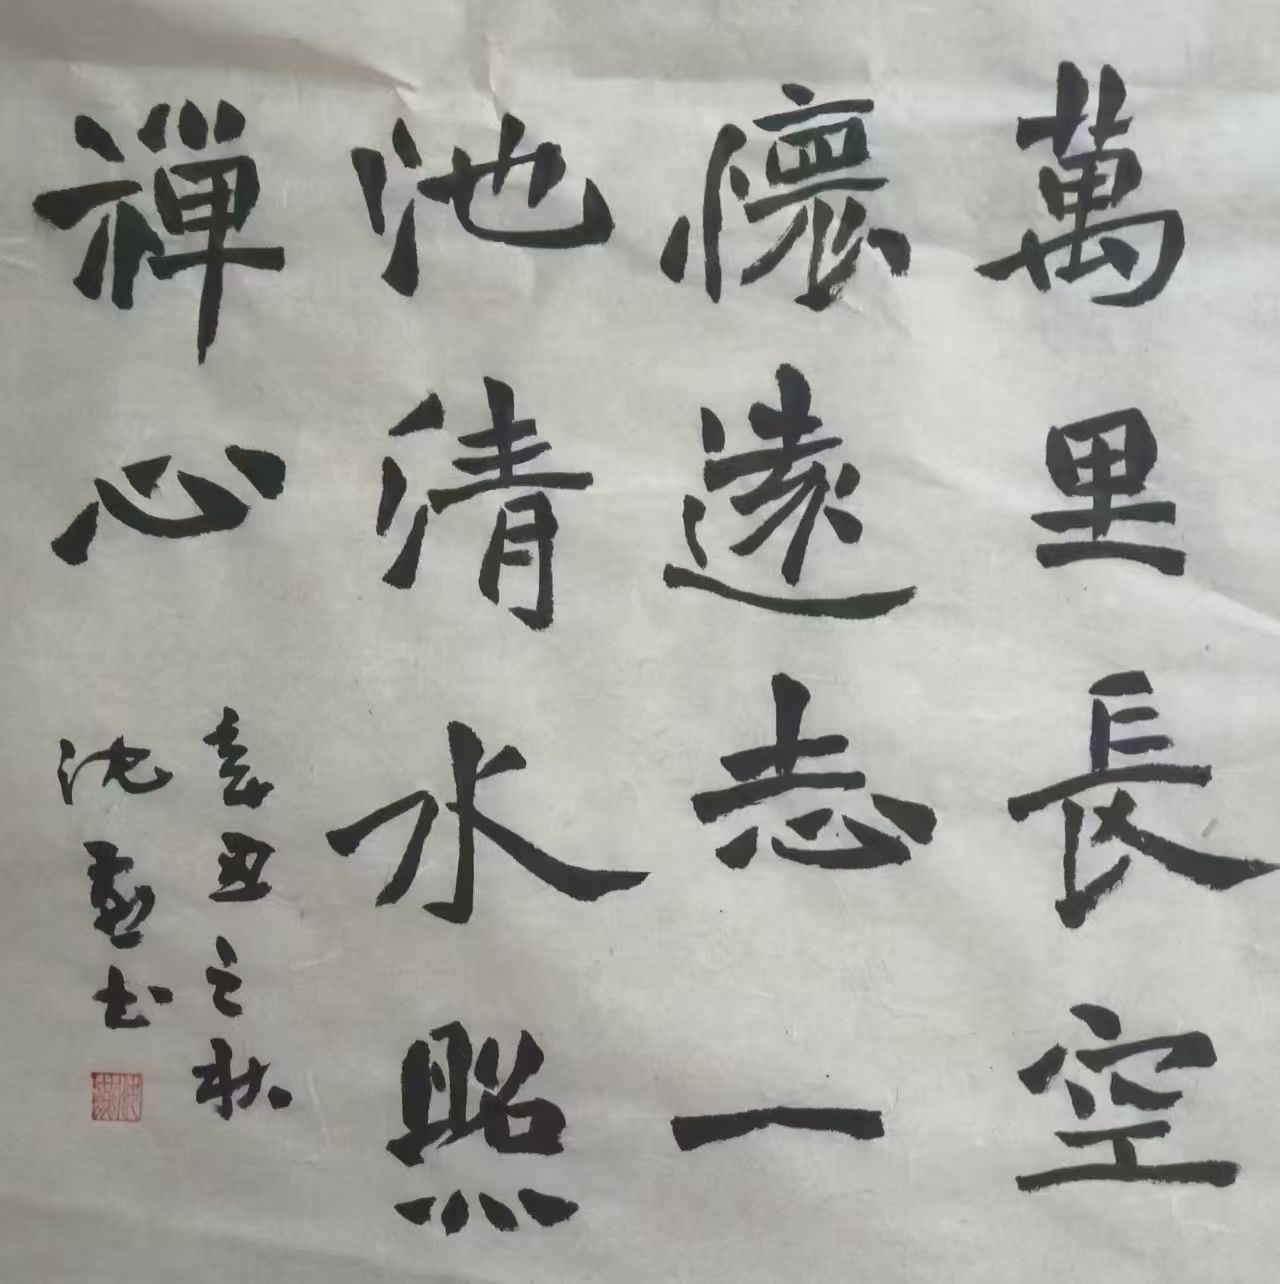 萬里長空
懷遠志一
池清水照
禪心
辛丑之秋
沈書